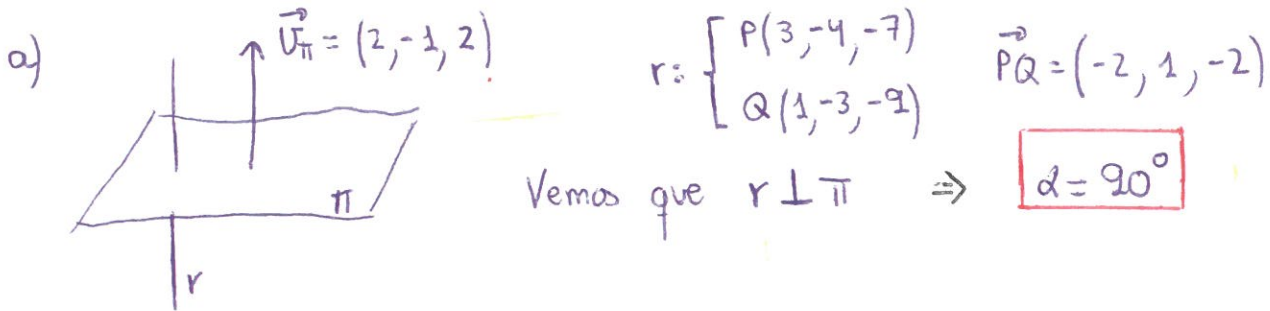 a)
v⃗π = (2,-1,2)
r: { P(3,-4,-7)
Q(1,-3,-9)
P⃗Q = (-2, 1, -2)
π
Vemos que r ⊥ π ⇒ α = 90°
r